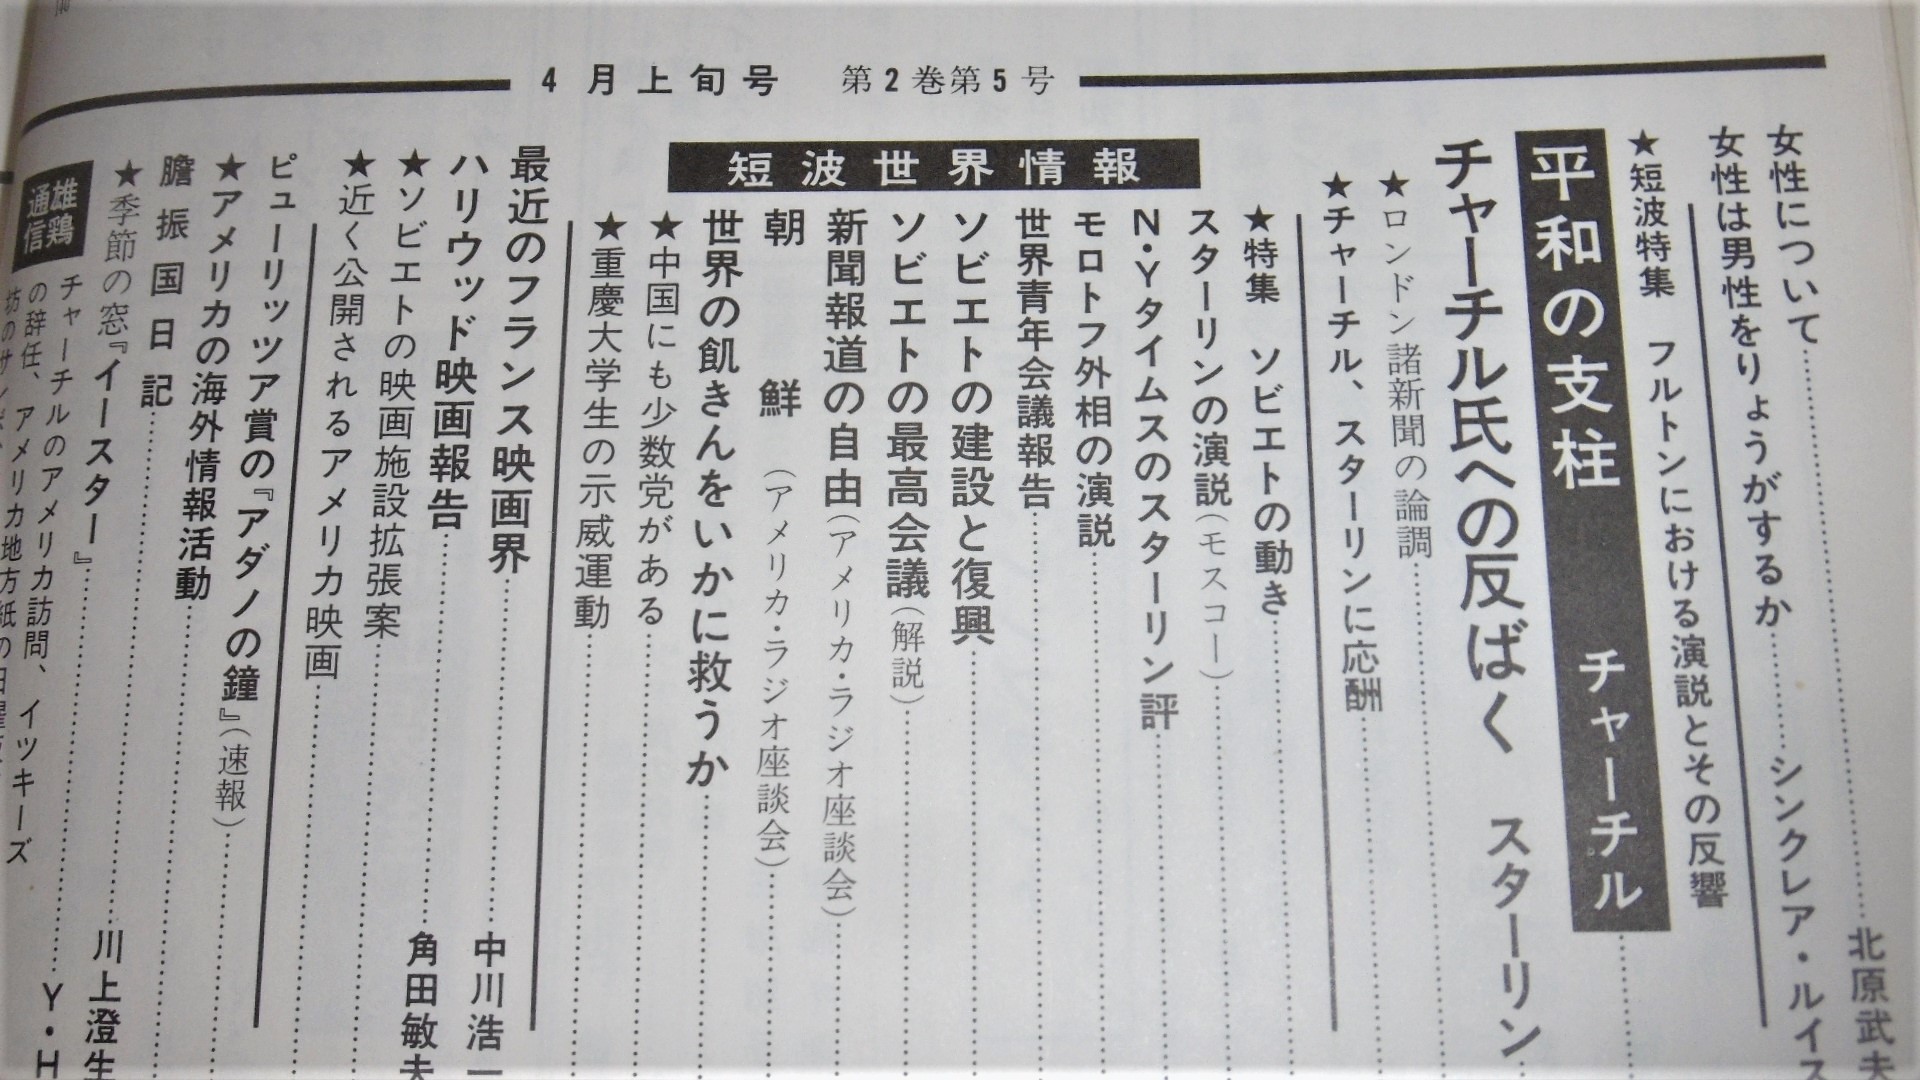 4月上旬号　第2巻第5号
女性について 北原武夫
女性は男性をりょうがするか シンクレア・ルイス
★短波特集 フルトンにおける演説とその反響
平和の支柱 チャーチル
チャーチル氏への反ばく スターリン
★ロンドン諸新聞の論調
★チャーチル、スターリンに応酬
短波世界情報
★特集 ソビエトの動き
スターリンの演説(モスコー)
N・Yタイムスのスターリン評
モロトフ外相の演説
世界青年会議報告
ソビエトの建設と復興
ソビエトの最高会議(解説)
新聞報道の自由(アメリカ・ラジオ座談会)
朝鮮(アメリカ・ラジオ座談会)
世界の飢きんをいかに救うか
★中国にも少数党がある
★重慶大学生の示威運動
最近のフランス映画界 中川浩一
ハリウッド映画報告 角田敏夫
★ソビエトの映画施設拡張案
★近く公開されるアメリカ映画
ピューリッツア賞の『アダノの鐘』(速報)
★アメリカの海外情報活動
膽振国日記
★季節の窓『イースター』 川上澄生
雄鶏通信
チャーチルのアメリカ訪問、イツキーズ Y・H
の辞任、アメリカ地方紙の日曜